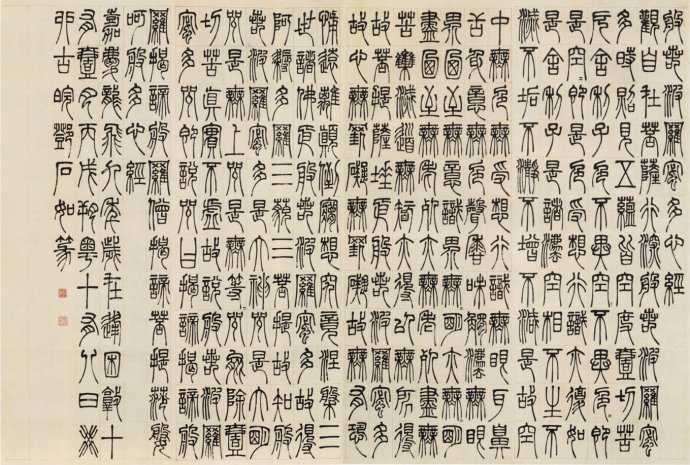 般若波羅蜜多心經
觀自在菩薩行深般若波羅蜜
多時照見五蘊皆空度一切苦
厄舍利子色不異空空不異色色即
是空空即是色受想行識亦復如
是舍利子是諸法空相不生不
滅不垢不淨不增不減是故空
中無色無受想行識無眼耳鼻
舌身意無色聲香味觸法無眼
界乃至無意識界無無明亦無無明
盡乃至無老死亦無老死盡無
苦集滅道無智亦無得以無所得
故菩提薩埵依般若波羅蜜多
故心無罣礙無罣礙故無有恐
怖遠離顛倒夢想究竟涅槃三
世諸佛依般若波羅蜜多故得
阿耨多羅三藐三菩提故知般
若波羅蜜多是大神咒是大明
咒是無上咒是無等等咒能除一
切苦真實不虛故說般若波羅
蜜多咒即說咒曰揭諦揭諦般
羅揭諦般羅僧揭諦菩提薩婆
呵般若多心經
嘉慶龍飛九年歲在逢困敦十
有一月丙戌朔粵十有八日癸
卯古皖鄧石如篆